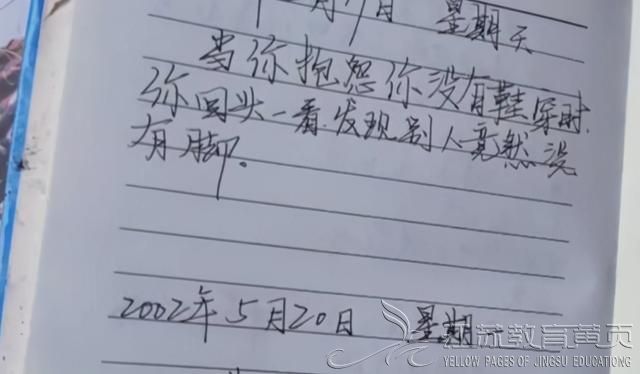 月19日 星期天
当你抱怨你没有鞋穿时.
你回头一看.发现别人竟然没
有脚.
2002年5月20日 星期一
苏教育黄页
YELLOW PAGES OF JINGSU EDUCATIONG